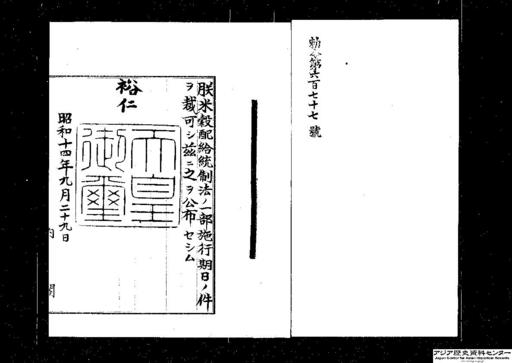 勅令第六百七十七號
朕米穀配給統制法ノ一部施行期日ノ件
ヲ裁可シ茲ニ之ヲ公布セシム
裕仁
天皇御璽
昭和十四年九月二十九日
内閣
アジア歴史資料センター
Japan Center for Asian Historical Records